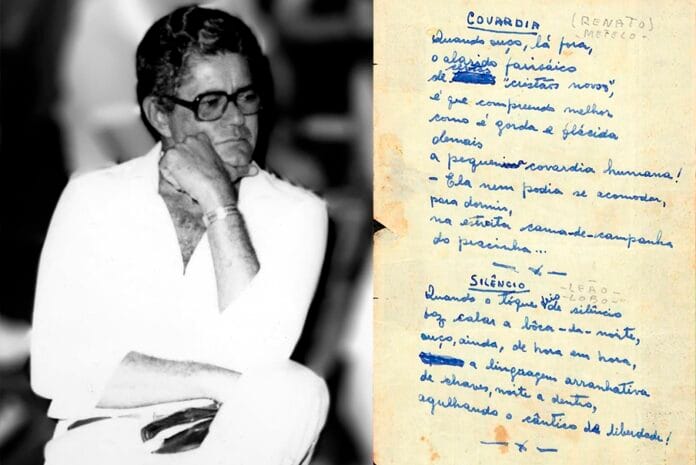 COVARDIA (RENATO)
- METELO -
Quando ouço, lá fora,
o alarido farisáico
de certos "cristãos novos",
é que compreendo melhor
como é gorda e flácida
demais
a pequenina covardia humana!
- Ela nem podia se acomodar,
para dormir,
na estreita cama-de-campanha
do pracinha...
SILÊNCIO - LEÃO -
- LOBO -
Quando o tóque de silêncio
faz calar a bôca-da-noite,
ouço, ainda, de hora em hora,
a linguagem arranhativa
de chaves, noite a dentro,
agulhando o cântico da liberdade!